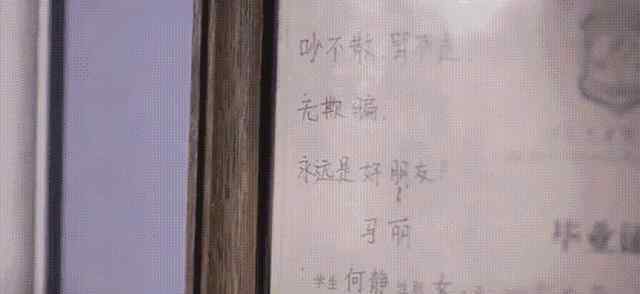 吵不散,骂不走,
无欺骗,
永远是好朋友!
马丽
毕业证
学生 何静 性别 女